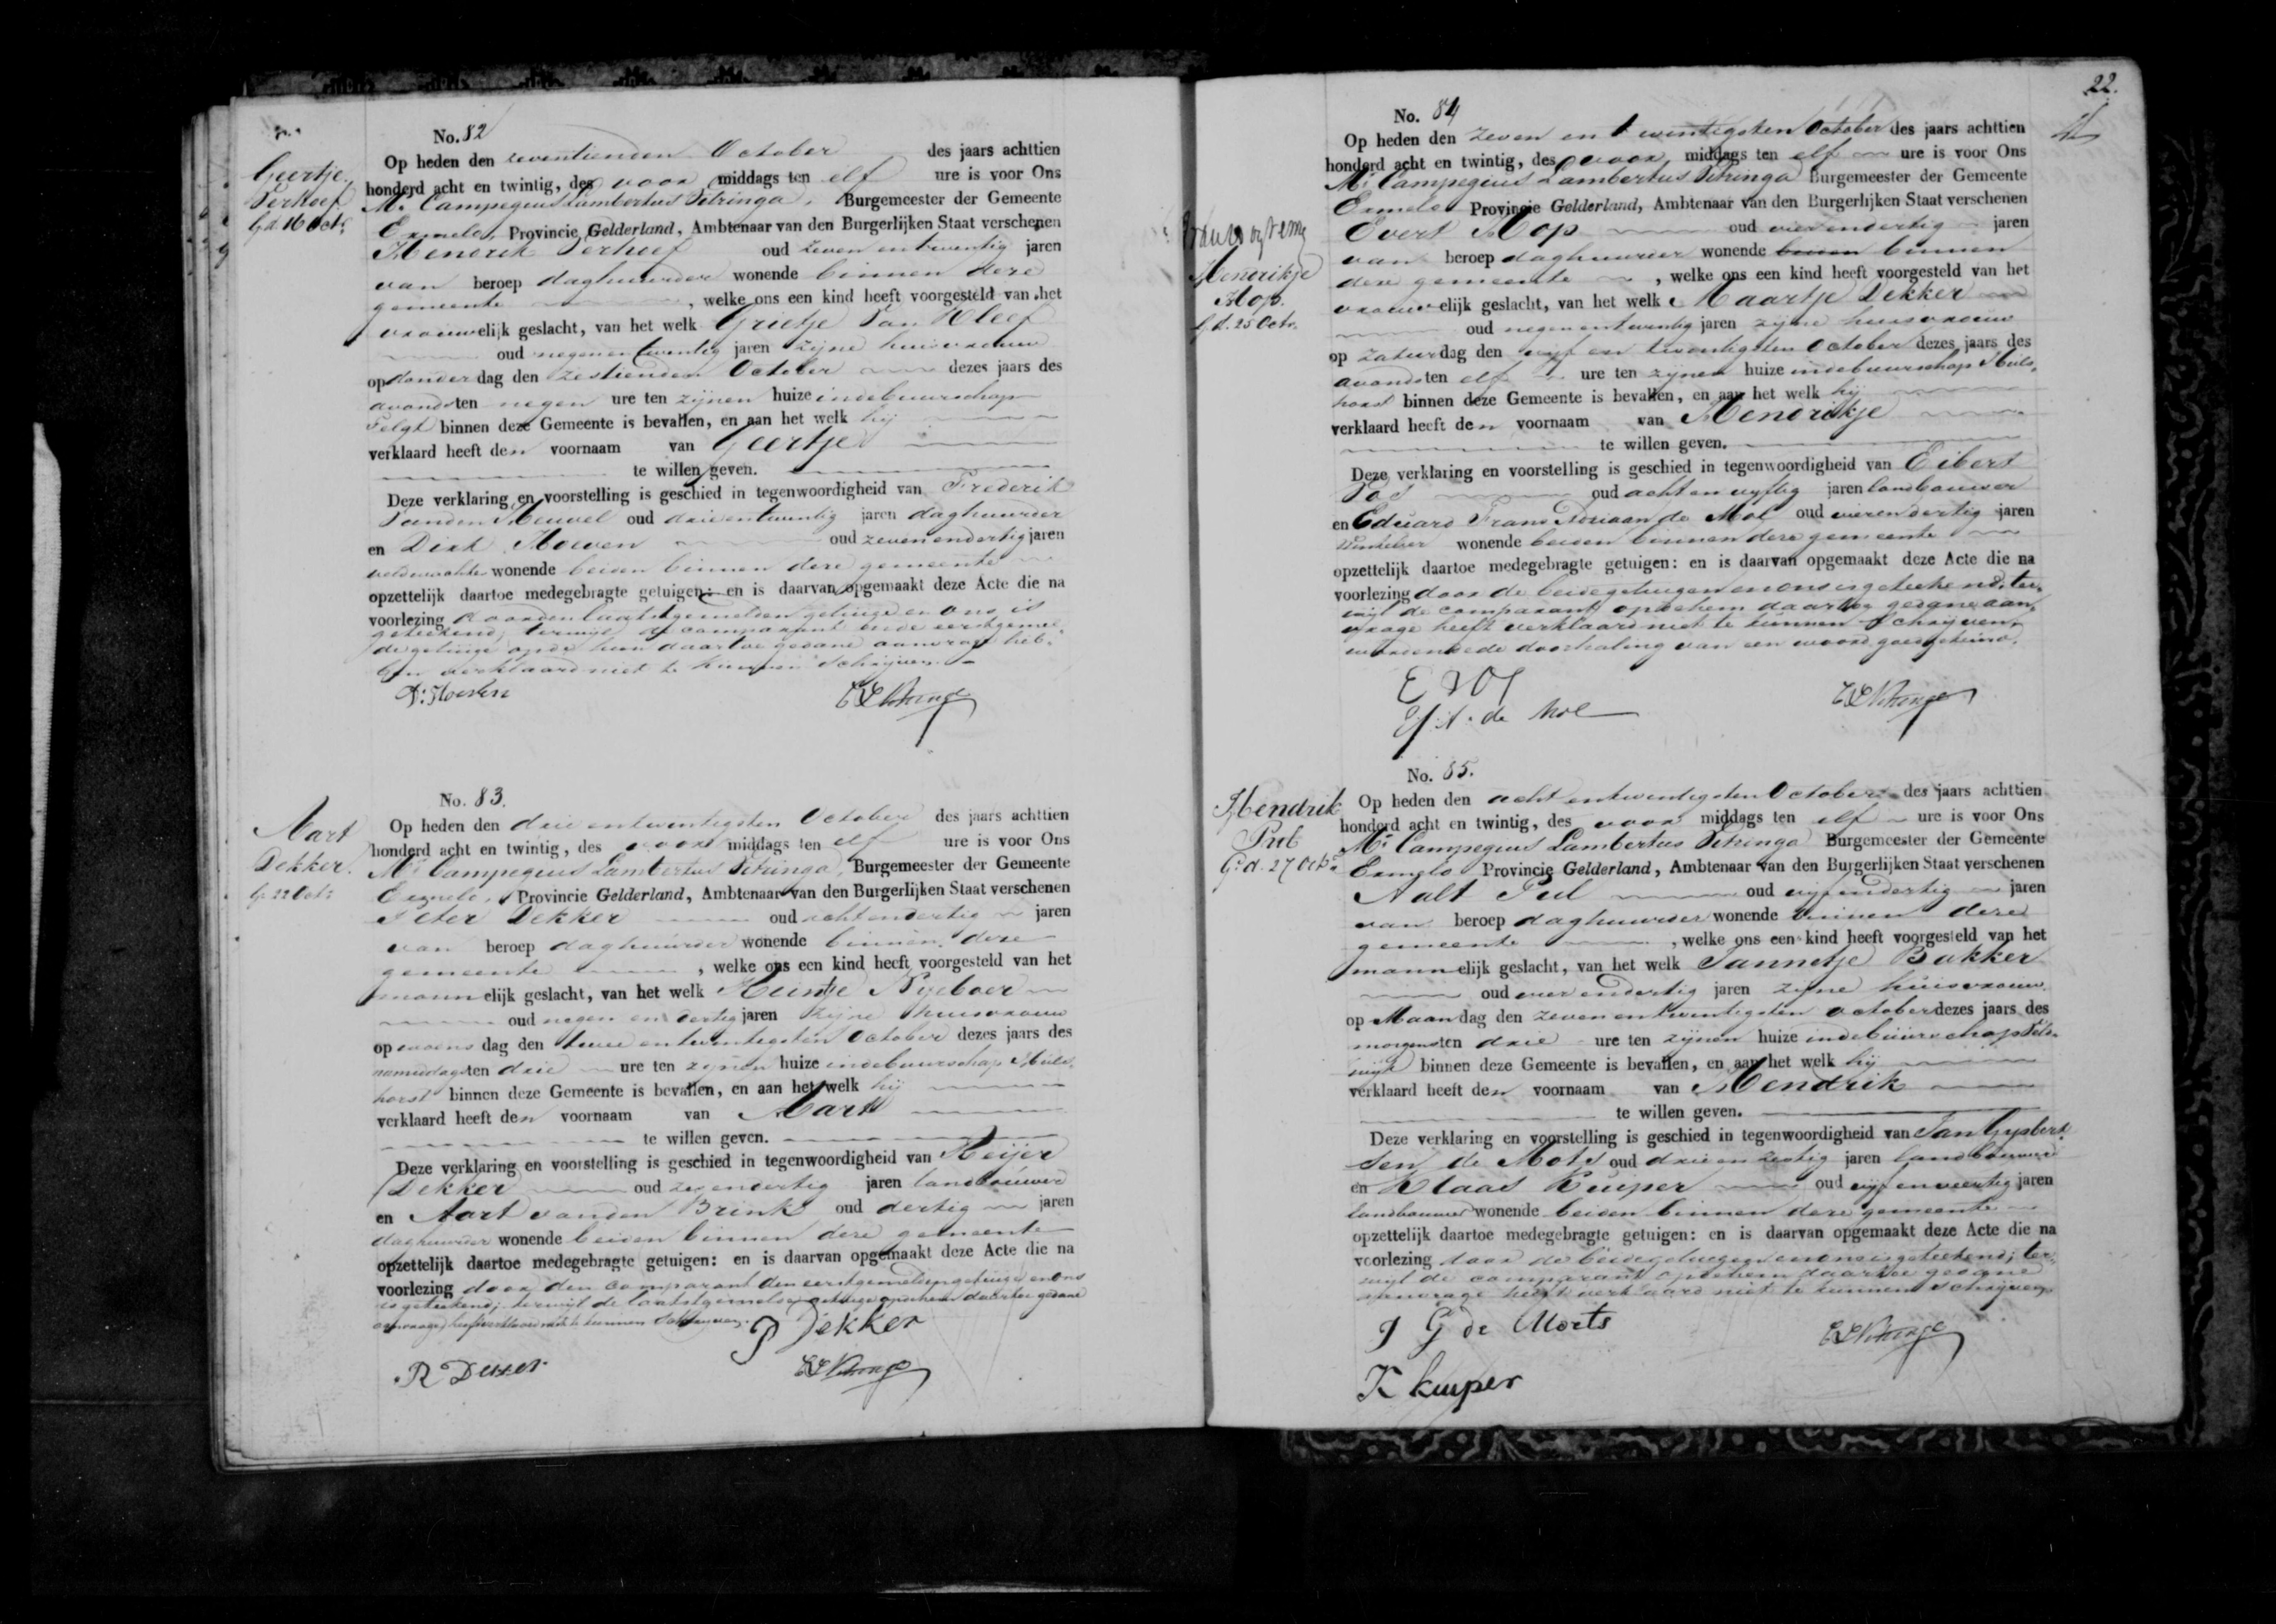 No. 82
Geertje
Verhoef
Op heden den zeventienden October des jaars achttien
honderd acht en twintig, des voor middags ten elf ure is voor Ons
Mr. Campegius Lambertus Vitringa, Burgemeester der Gemeente
Ermelo, Provincie Gelderland, Ambtenaar van den Burgerlijken Staat verschenen
Hendrik Verhoef oud zeven en twentig jaren
van beroep daghuurder wonende binnen deze
gemeente , welke ons een kind heeft voorgesteld van het
vrouwelijk geslacht, van het welk Grietje van Kleef
oud negen en twentig jaren zijne huisvrouw
op donderdag den zestienden October dezes jaars des
avonds ten negen ure ten zijnen huize in de buurschap
Telgt binnen deze Gemeente is bevallen, en aan het welk hij
verklaard heeft den voornaam van Geertje
te willen geven.
Deze verklaring en voorstelling is geschied in tegenwoordigheid van Frederik
van den Heuvel oud drie en twentig jaren daghuurder
en Dirk Hoeven oud zeven en dertig jaren
veldwachter wonende beiden binnen deze gemeente
opzettelijk daartoe medegebragte getuigen: en is daarvan opgemaakt deze Acte die na
voorlezing door den laatstgemelden getuige en ons is
geteekend, terwijl de comparant en de eerstgemel-
de getuige op de hun daartoe gedane aanvrage heb-
ben verklaard niet te kunnen schrijven.
No. 83.
Aart
Dekker.
Op heden den drie en twentigsten October des jaars achttien
honderd acht en twintig, des voor middags ten elf ure is voor Ons
Mr. Campegius Lambertus Vitringa, Burgemeester der Gemeente
Ermelo, Provincie Gelderland, Ambtenaar van den Burgerlijken Staat verschenen
Peter Dekker oud acht en dertig jaren
van beroep daghuurder wonende binnen deze
gemeente , welke ons een kind heeft voorgesteld van het
mannelijk geslacht, van het welk Heintje Nyeboer
oud negen en dertig jaren zijne huisvrouw
op woensdag den twee en twentigsten October dezes jaars des
namiddags ten drie ure ten zijnen huize in de buurschap Huls-
horst binnen deze Gemeente is bevallen, en aan het welk hij
verklaard heeft den voornaam van Aart
te willen geven.
Deze verklaring en voorstelling is geschied in tegenwoordigheid van Reijer
Dekker oud zes en dertig jaren landbouwer
en Aart van den Brink oud dertig jaren
daghuurder wonende beiden binnen deze gemeente
opzettelijk daartoe medegebragte getuigen: en is daarvan opgemaakt deze Acte die na
voorlezing door den comparant den eerstgemelden getuige en ons
is geteekend; terwijl de laatstgemelde getuige op de hem daartoe gedane
aanvrage heeft verklaard niet te kunnen schrijven.
P Dekker
22.
No. 84
Hendrikje
Mop.
gd. 25 Octr.
Op heden den zeven en twentigsten October des jaars achttien
honderd acht en twintig, des voor middags ten elf ure is voor Ons
Mr. Campegius Lambertus Vitringa Burgemeester der Gemeente
Ermelo Provincie Gelderland, Ambtenaar van den Burgerlijken Staat verschenen
Evert Mop oud vier en dertig jaren
van beroep daghuurder wonende binnen
deze gemeente , welke ons een kind heeft voorgesteld van het
vrouwelijk geslacht, van het welk Maartje Dekker
oud negen en twentig jaren zijne huisvrouw
op zaturdag den vijf en twentigsten October dezes jaars des
avonds ten elf ure ten zijnen huize in de buurschap Huls-
horst binnen deze Gemeente is bevallen, en aan het welk hij
verklaard heeft den voornaam van Hendrikje
te willen geven.
Deze verklaring en voorstelling is geschied in tegenwoordigheid van Eibert
Vos oud acht en vyftig jaren landbouwer
en Eduard Frans Adriaan de Mol oud vier en dertig jaren
wonende beiden binnen deze gemeente
opzettelijk daartoe medegebragte getuigen: en is daarvan opgemaakt deze Acte die na
voorlezing door de beide getuigen en ons is geteekend, ter-
wijl de comparant op de hem daartoe gedane aan-
vrage heeft verklaard niet te kunnen schrijven,
wordende de doorhaling van een woord goedgekeurd.
E VOS
E. F. A. de Mol
No. 85.
Hendrik
Pul
gd. 27 Octr.
Op heden den acht en twentigsten October des jaars achttien
honderd acht en twintig, des voor middags ten elf ure is voor Ons
Mr. Campegius Lambertus Vitringa Burgemeester der Gemeente
Ermelo Provincie Gelderland, Ambtenaar van den Burgerlijken Staat verschenen
Aalt Pul oud vijf en dertig jaren
van beroep daghuurder wonende binnen deze
gemeente , welke ons een kind heeft voorgesteld van het
mannelijk geslacht, van het welk Jannetje Bakker
oud vier en dertig jaren zijne huisvrouw
op Maandag den zeven en twentigsten October dezes jaars des
morgens ten drie ure ten zijnen huize in de buurschap
binnen deze Gemeente is bevallen, en aan het welk hij
verklaard heeft den voornaam van Hendrik
te willen geven.
Deze verklaring en voorstelling is geschied in tegenwoordigheid van Jan Gysbert
sen de Mots oud drie en zestig jaren landbouwer
en Klaas Kuiper oud vijf en veertig jaren
landbouwer wonende beiden binnen deze gemeente
opzettelijk daartoe medegebragte getuigen: en is daarvan opgemaakt deze Acte die na
voorlezing door de beide getuigen en ons is geteekend; ter-
wijl de comparant op de hem daartoe gedane
aanvrage heeft verklaard niet te kunnen schrijven
J G de Moets
K kuyper